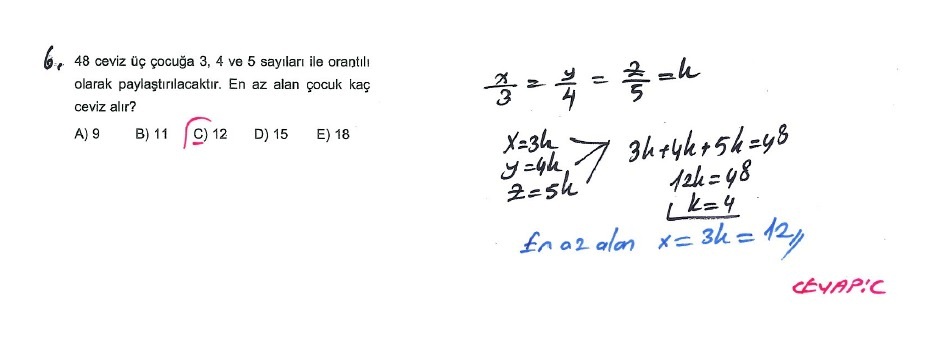 6. 48 ceviz üç çocuğa 3, 4 ve 5 sayıları ile orantılı
olarak paylaştırılacaktır. En az alan çocuk kaç
ceviz alır?
A) 9 B) 11 C) 12 D) 15 E) 18
x/3 = y/4 = z/5 = k
x=3k
y=4k
z=5k
3k+4k+5k=48
12k=48
k=4
En az alan x=3k=12//
CEVAP:C